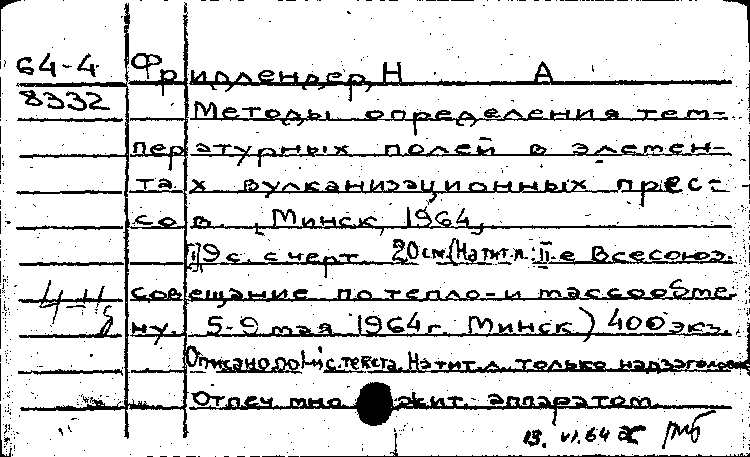 64-4 Фридлендер, Н А
8332
Методы определения тем-
пературных полей в элемен-
тах вулканизационных прес-
сов. Минск, 1964,
9 с. с черт. 20 см. (На тит. л.: II-е Всесоюз.
совещание по тепло- и массообме-
ну. 5-9 мая 1964 г. Минск) 400 экз.
Описано по 1-й с. текста. На тит. л. только надзаголов
Отпеч. мно жит. аппаратом.
13. VI. 64